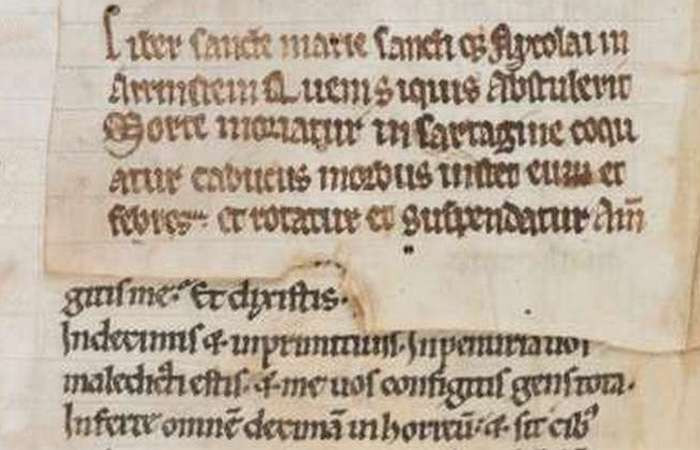 Liber sancte marie sancti qꝫ Nycolai in
Arrinstein Quem siquis Abstulerit
Morte moriatur in sartagine coqu
atur caducus morbus instet eum et
febres. et rotatur et suspendatur Am̄
gitis me. Et dixistis.
In decimis & in primitiuis. In penuria uos
maledicti estis. & me uos configitis gens tota.
Inferte omnē decimā in horreū. & sit cibꝰ